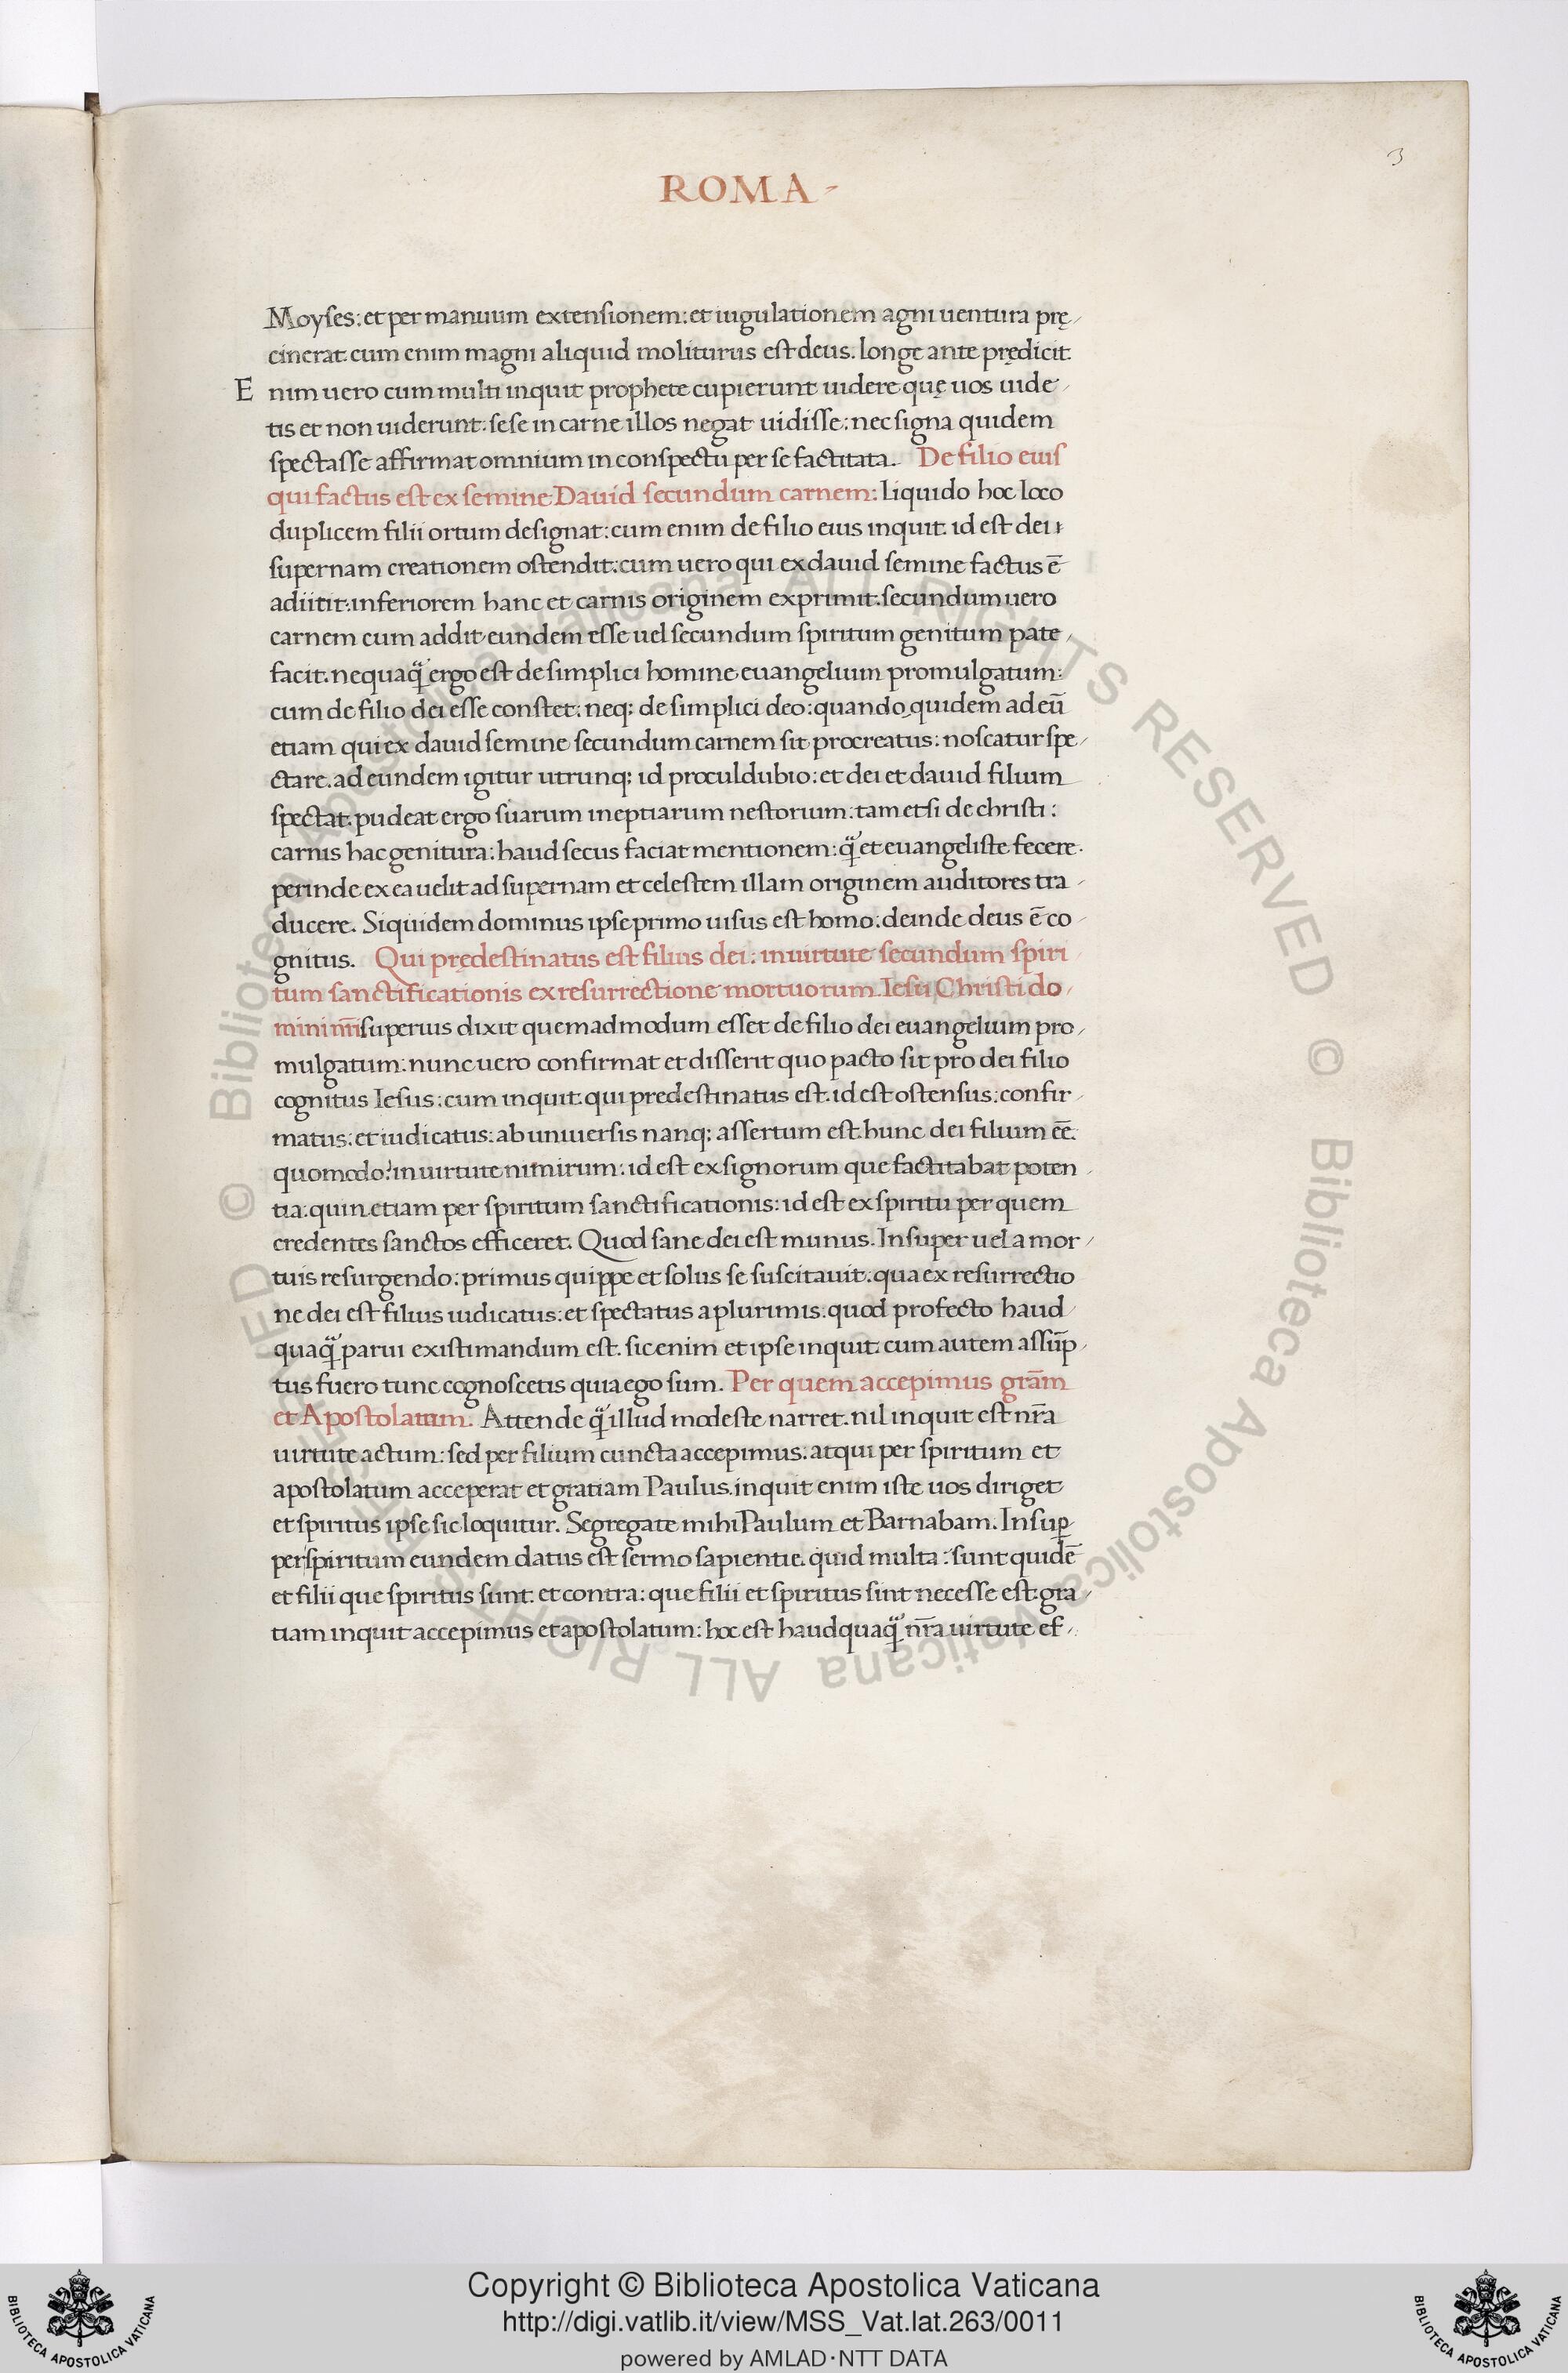 3
ROMA
Moyses: et per manuum extensionem: et iugulationem agni uentura prę
cinerat. cum enim magni aliquid moliturus est deus. longe ante prędicit.
E nim uero cum multi inquit prophete cupierunt uidere quę uos uide
tis et non uiderunt: sese in carne illos negat uidisse: nec signa quidem
spectasse affirmat omnium in conspectu per se factitata. De filio eius
qui factus est ex semine Dauid secundum carnem: Liquido hoc loco
duplicem filii ortum designat: cum enim de filio eius inquit. id est dei
supernam creationem ostendit: cum uero qui ex dauid semine factus ē
adiitit: inferiorem hanc et carnis originem exprimit. secundum uero
carnem cum addit eundem esse uel secundum spiritum genitum pate
facit. nequaq̃ ergo est de simplici homine euangelium promulgatum:
cum de filio dei esse constet: neq; de simplici deo: quando quidem ad eū
etiam qui ex dauid semine secundum carnem sit procreatus: noscatur spe
ctare. ad eundem igitur utrunq; id proculdubio: et dei et dauid filium
spectat. pudeat ergo suarum ineptiarum nestorium: tametsi de christi:
carnis hac genitura: haud secus faciat mentionem: q̃ et euangeliste fecere.
perinde ex ea uelit ad supernam et celestem illam originem auditores tra
ducere. Siquidem dominus ipse primo uisus est homo: deinde deus ē co
gnitus. Qui prędestinatus est filius dei: in uirtute secundum spiri
tum sanctificationis ex resurrectione mortuorum Iesu Christi do
mini nr̄i superius dixit quemadmodum esset de filio dei euangelium pro
mulgatum: nunc uero confirmat et disserit quo pacto sit pro dei filio
cognitus Iesus: cum inquit. qui predestinatus est. id est ostensus: confir
matus: et iudicatus: ab uniuersis nanq; assertum est. hunc dei filium eē.
quomodo? in uirtute nimirum: id est ex signorum que factitabat poten
tia: quin etiam per spiritum sanctificationis: id est ex spiritu per quem
credentes sanctos efficeret. Quod sane dei est munus. Insuper uel a mor
tuis resurgendo: primus quippe et solus se suscitauit: qua ex resurrectio
ne dei est filius iudicatus: et spectatus a plurimis. quod profecto haud
quaq̃ parui existimandum est. sic enim et ipse inquit: cum autem assūp
tus fuero tunc cognoscetis quia ego sum. Per quem accepimus grām
et Apostolatum. Attende q̃ illud modeste narret. nil inquit est nr̄a
uirtute actum: sed per filium cuncta accepimus. atqui per spiritum et
apostolatum acceperat et gratiam Paulus. inquit enim iste uos diriget
et spiritus ipse sic loquitur. Segregate mihi Paulum et Barnabam. Insup̱
per spiritum eundem datus est sermo sapientie. quid multa: sunt quidē
et filii que spiritus sunt: et contra: que filii et spiritus sint necesse est. gra
tiam inquit accepimus et apostolatum: hoc est haudquaq̃ nr̄a uirtute ef
© Biblioteca Apostolica Vaticana ALL RIGHTS RESERVED
© Biblioteca Apostolica Vaticana ALL RIGHTS RESERVED
Copyright © Biblioteca Apostolica Vaticana
http://digi.vatlib.it/view/MSS_Vat.lat.263/0011
powered by AMLAD·NTT DATA
BIBLIOTECA APOSTOLICA VATICANA
BIBLIOTECA APOSTOLICA VATICANA